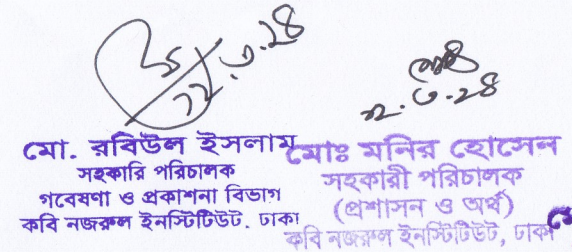 ১২.৩.২৪
মো. রবিউল ইসলাম
সহকারি পরিচালক
গবেষণা ও প্রকাশনা বিভাগ
কবি নজরুল ইনস্টিটিউট, ঢাকা
১২.৩.২৪
মোঃ মনির হোসেন
সহকারী পরিচালক
(প্রশাসন ও অর্থ)
কবি নজরুল ইনস্টিটিউট, ঢাকা